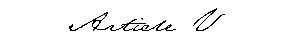 Article V